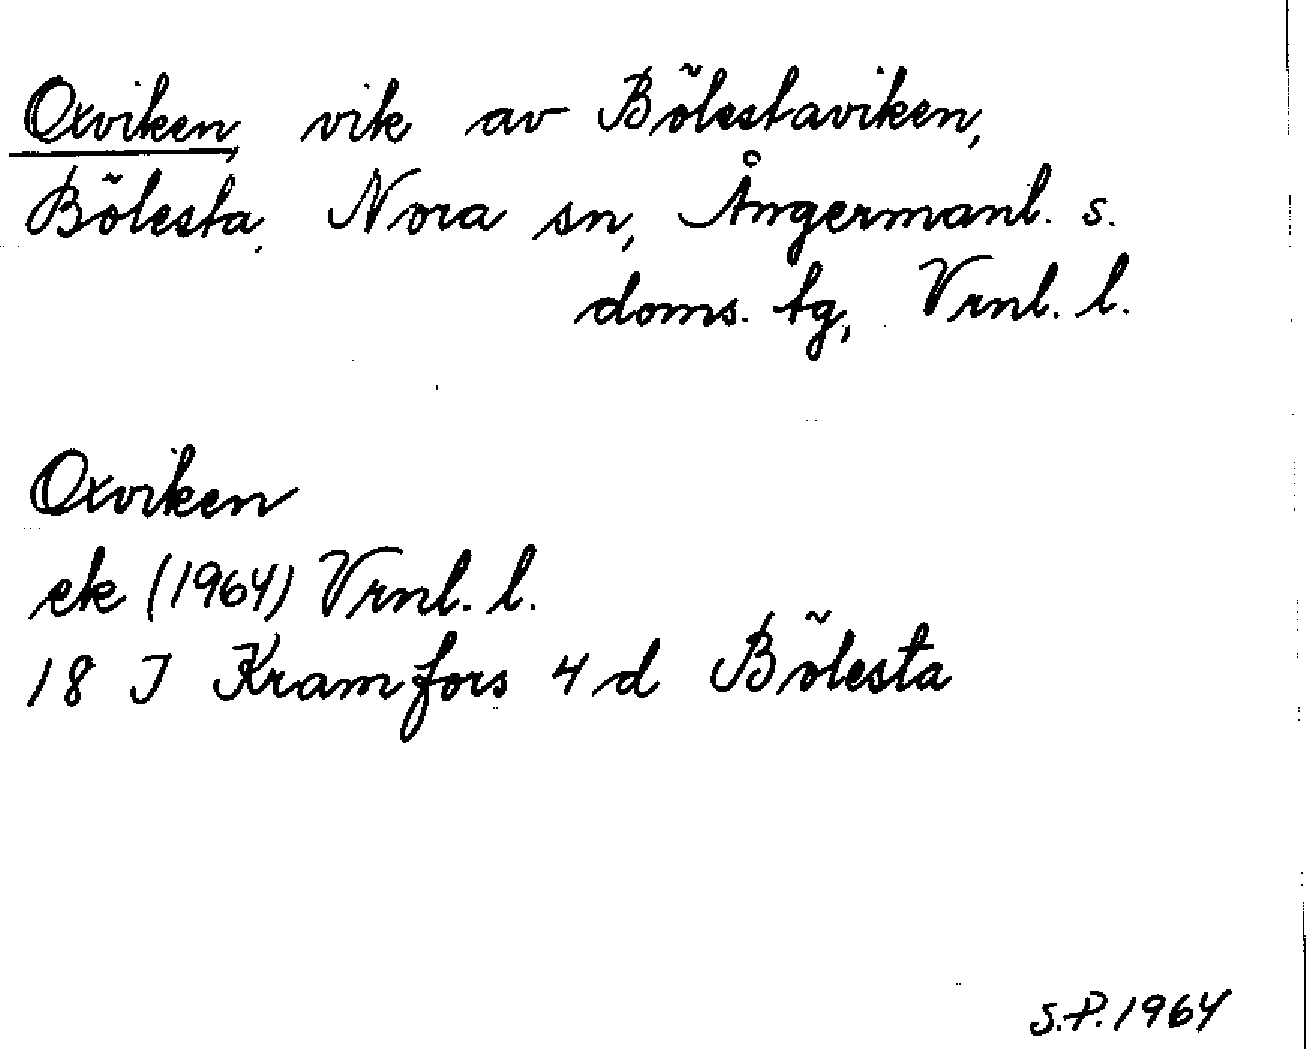 Oxviken, vik av Bölestaviken,
Bölesta, Nora sn, Ångermanl. s.
doms. tg, Vrnl. l.
Oxviken
ek (1964) Vrnl. l.
18 I Kramfors 4 d Bölesta
S.P. 1964